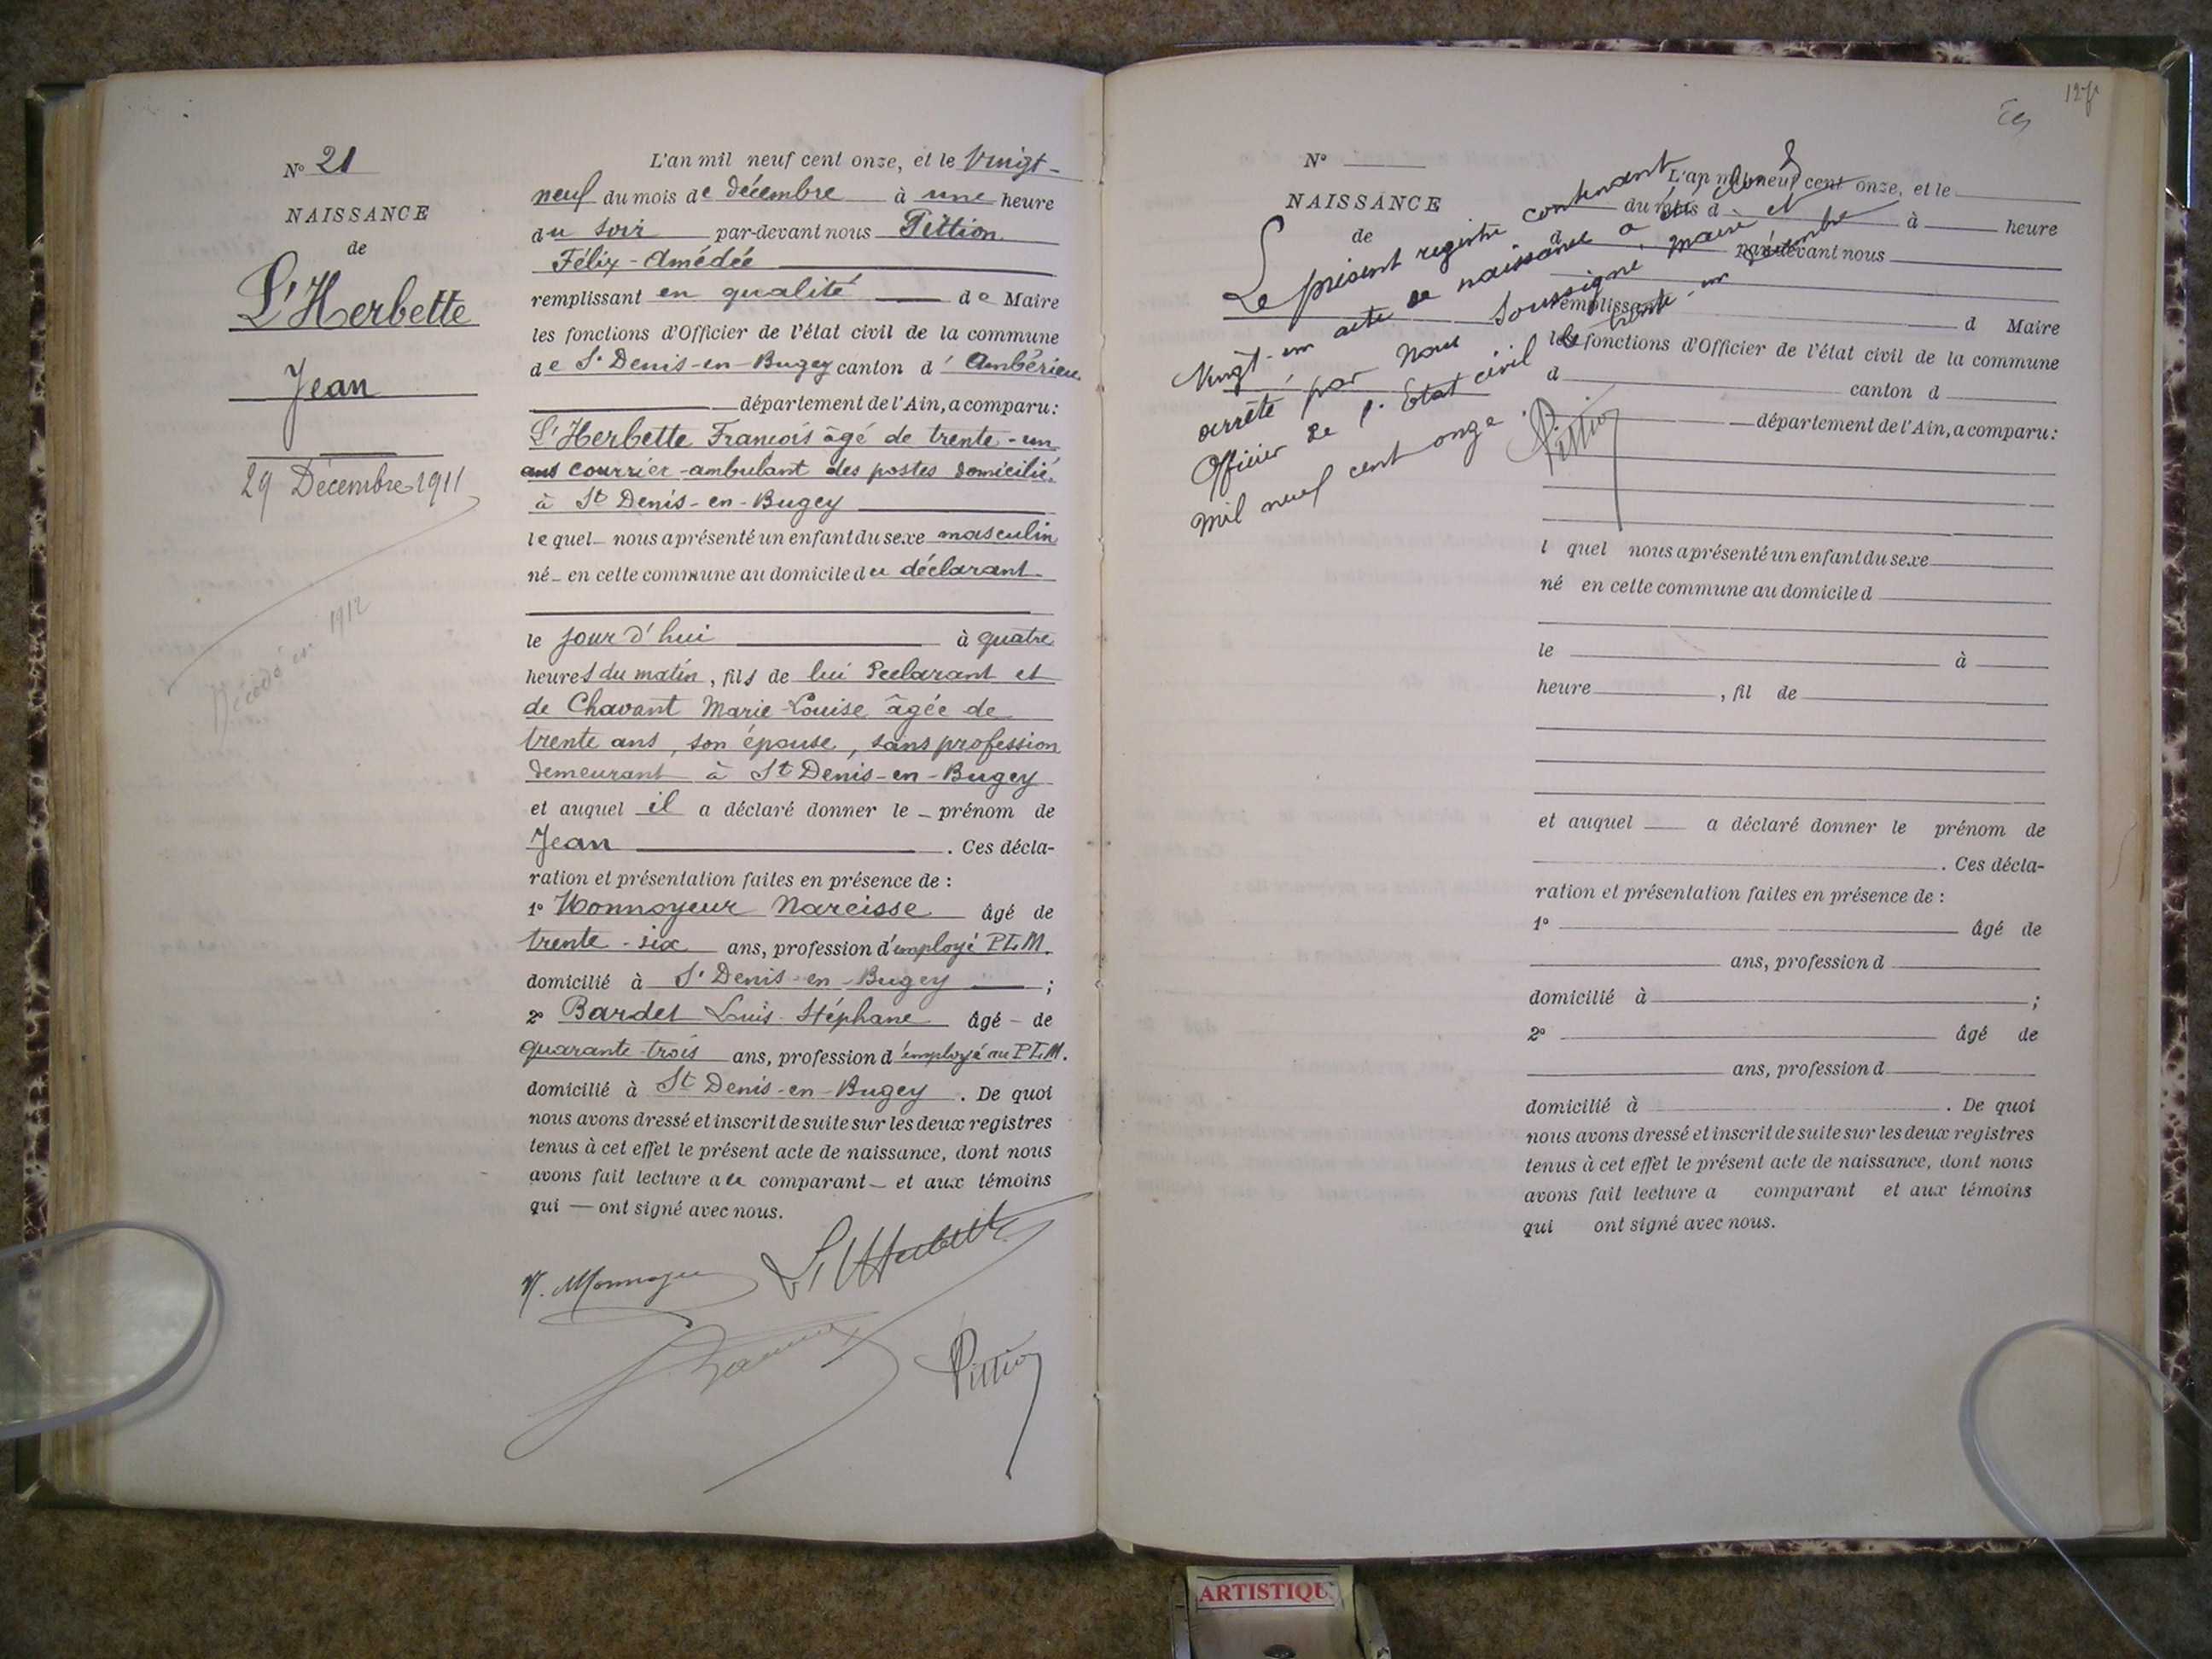 N° 21
NAISSANCE
de
L'Herbette
Jean
29 Décembre 1911
Décédé en 1912
L'an mil neuf cent onze, et le Vingt-
neuf du mois de décembre à une heure
du soir par-devant nous Pittion
Félix-Amédée
remplissant en qualité de Maire
les fonctions d'Officier de l'état civil de la commune
de St Denis-en-Bugey canton d'Ambérieu
département de l'Ain, a comparu:
L'Herbette François âgé de trente-un
ans courrier-ambulant des postes domicilié
à St Denis-en-Bugey
lequel nous a présenté un enfant du sexe masculin
né en cette commune au domicile du déclarant
le jour d'hui à quatre
heures du matin, fils de lui déclarant et
de Chavant Marie-Louise âgée de
trente ans, son épouse, sans profession
demeurant à St Denis-en-Bugey
et auquel il a déclaré donner le prénom de
Jean. Ces décla-
ration et présentation faites en présence de :
1° Monnoyeur Narcisse âgé de
trente-six ans, profession d'employé PLM.
domicilié à St Denis-en-Bugey ;
2° Bardet Louis Stéphane âgé de
quarante-trois ans, profession d'employé au PLM.
domicilié à St Denis-en-Bugey. De quoi
nous avons dressé et inscrit de suite sur les deux registres
tenus à cet effet le présent acte de naissance, dont nous
avons fait lecture au comparant et aux témoins
qui ont signé avec nous.
N. Monnoyeur L'Herbette
Pittion
N°
NAISSANCE
de
Le présent registre contenant
Vingt-un acte de naissance a été clos &
arrêté par nous soussigné, maire et
Officier de l'Etat civil le trente-un décembre
mil neuf cent onze.
Pittion
L'an mil neuf cent onze, et le
du mois d à heure
d par-devant nous
remplissant d Maire
les fonctions d'Officier de l'état civil de la commune
d canton d
département de l'Ain, a comparu:
l quel nous a présenté un enfant du sexe
né en cette commune au domicile d
le à
heure , fil de
et auquel a déclaré donner le prénom de
. Ces décla-
ration et présentation faites en présence de :
1° âgé de
ans, profession d
domicilié à ;
2° âgé de
ans, profession d
domicilié à . De quoi
nous avons dressé et inscrit de suite sur les deux registres
tenus à cet effet le présent acte de naissance, dont nous
avons fait lecture a comparant et aux témoins
qui ont signé avec nous.
ARTISTIQU